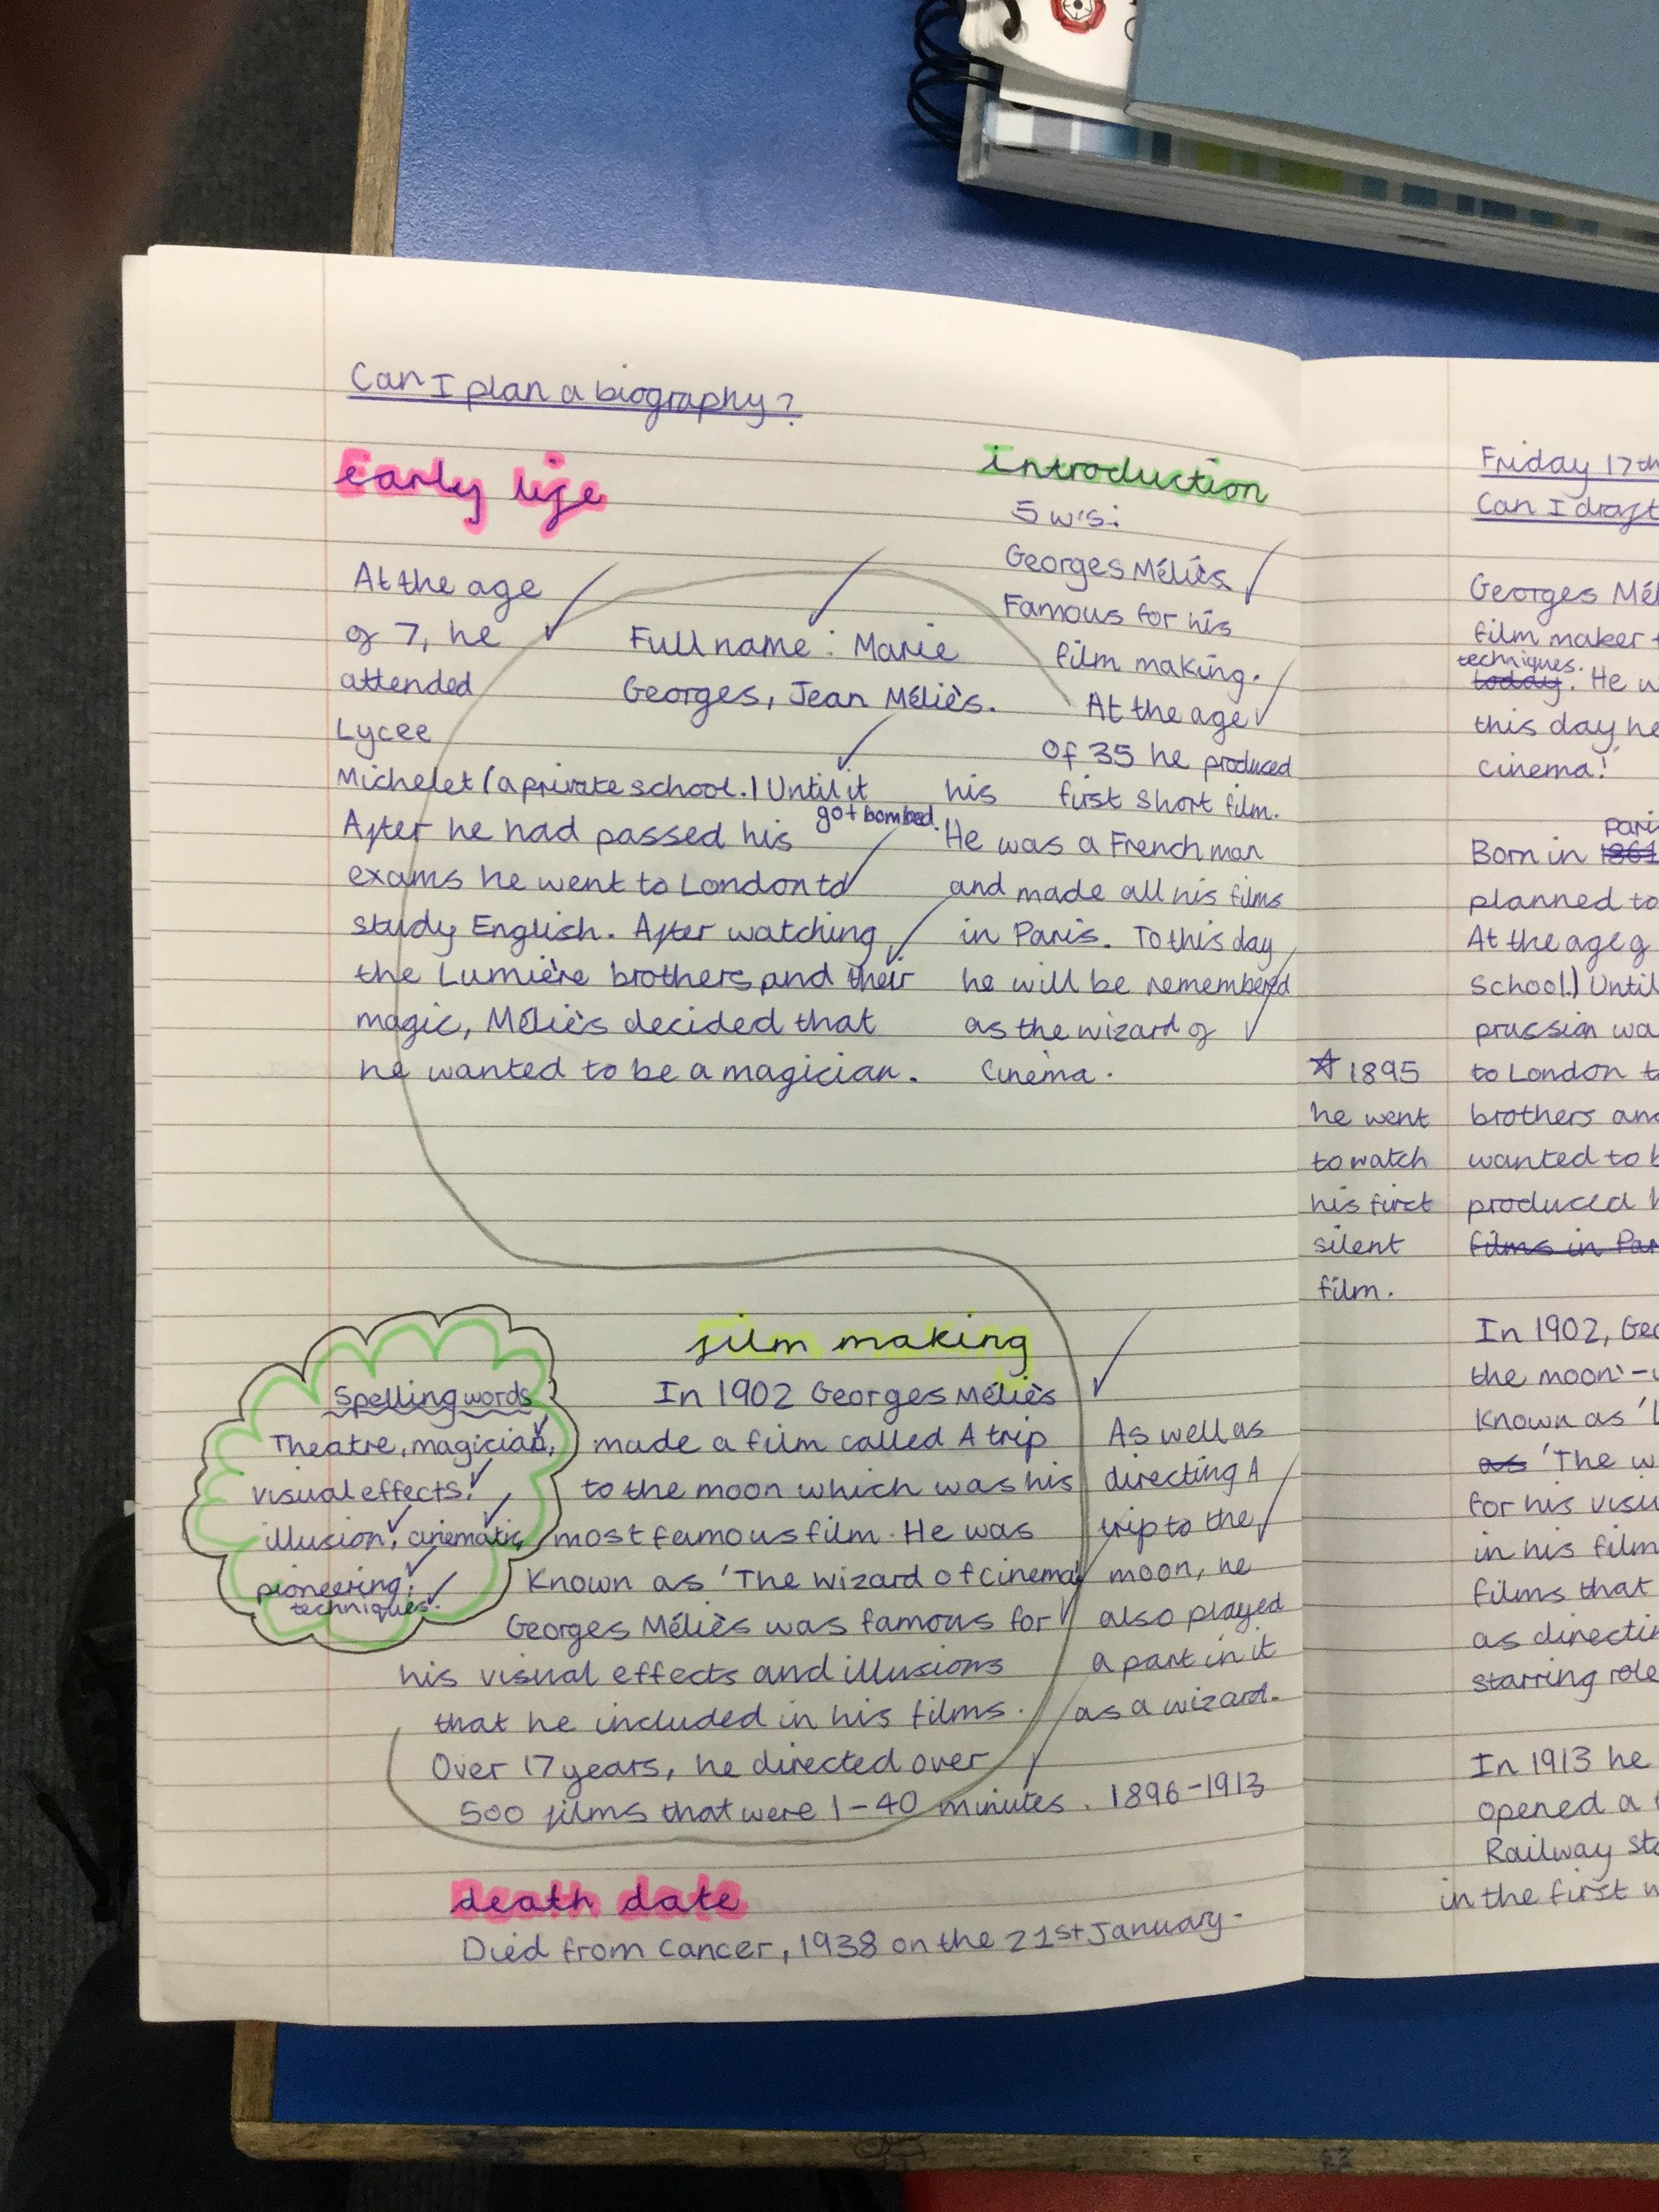 Can I plan a biography?
early life
At the age
of 7, he
attended
Lycee
Michelet (a private school.) Until it
got bombed.
After he had passed his
exams he went to London to
study English. After watching
the Lumière brothers and their
magic, Méliès decided that
he wanted to be a magician.
Full name: Marie
Georges, Jean Méliès.
introduction
5 w's:
Georges Méliès
Famous for his
film making.
At the age
of 35 he produced
his first short film.
He was a French man
and made all his films
in Paris. To this day
he will be remembered
as the wizard of
Cinema.
Spelling words
Theatre, magician,
visual effects,
illusion, cinematic,
pioneering,
techniques.
film making
In 1902 Georges Méliès
made a film called A trip
to the moon which was his
most famous film. He was
Known as 'The wizard of cinema'
Georges Méliès was famous for
his visual effects and illusions
that he included in his films.
Over 17 years, he directed over
500 films that were 1-40 minutes. 1896-1913
As well as
directing A
trip to the
moon, he
also played
a part in it
as a wizard.
death date
Died from cancer, 1938 on the 21st January.
Friday 17th
Can I draft
Georges
film maker
techniques.
today. He
this day he
cinema!
Born in 1861
planned to
At the age
School.) Until
prussian
to London
brothers
wanted to
produced
films in
☆ 1895
he went
to watch
his first
silent
film.
In 1902,
the moon:-
Known as
as 'The
for his
in his film
films that
as
starring role
In 1913 he
opened a
Railway
in the first